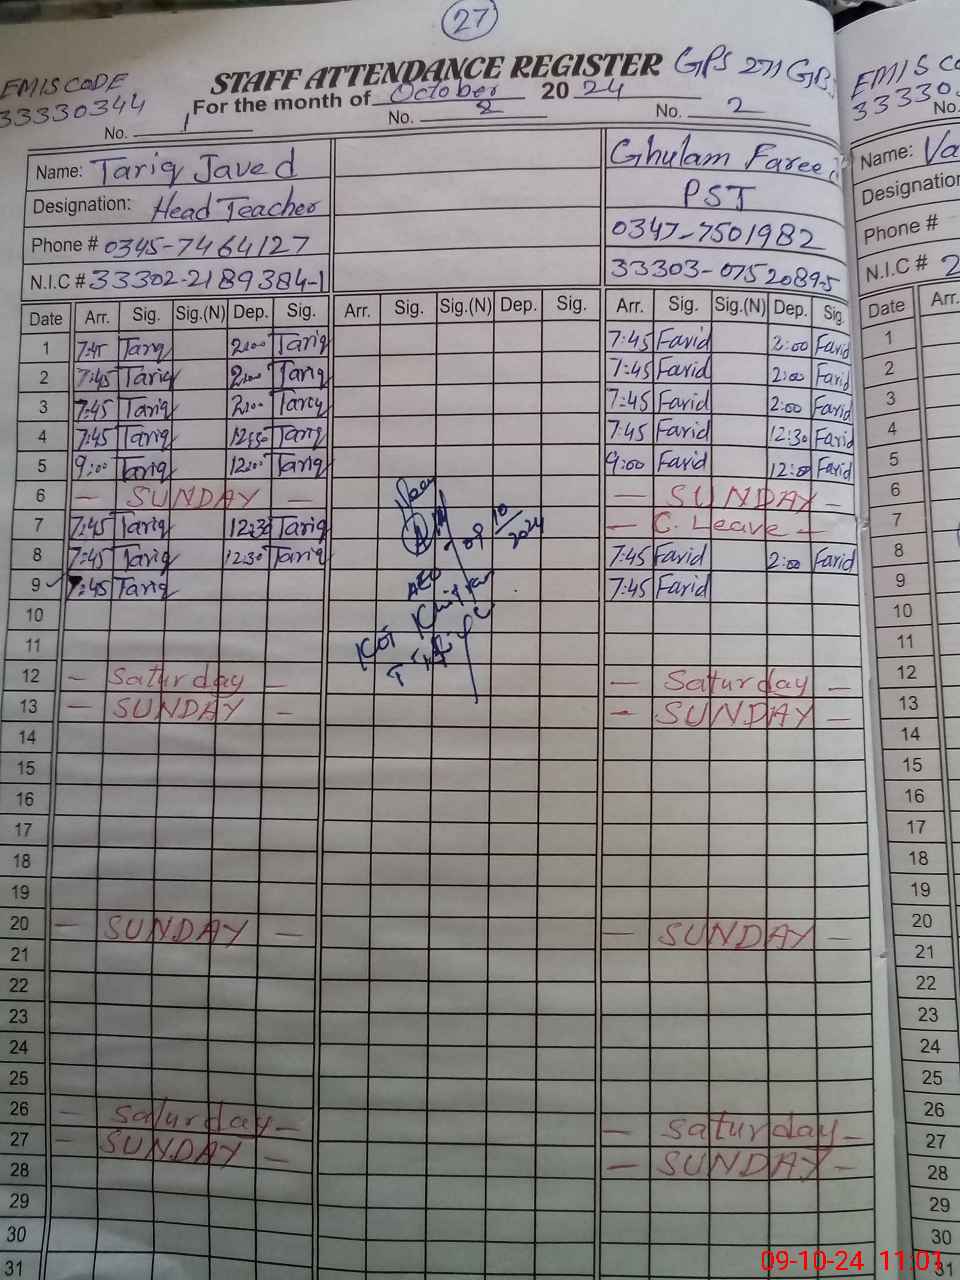 27
EMIS CODE
33330344
STAFF ATTENDANCE REGISTER GPS 271 GB
For the month of October 2024
No. 1 No. 2 No. 2
Name: Tariq Javed Ghulam Fareed
Designation: Head Teacher PST
Phone # 0345-7464127 0347-7501982
N.I.C # 33302-2189384-1 33303-0752089-5
Date Arr. Sig. Sig.(N) Dep. Sig. Arr. Sig. Sig.(N) Dep. Sig. Arr. Sig. Sig.(N) Dep. Sig.
1 7:45 Tariq 2:00 Tariq 7:45 Farid 2:00 Farid
2 7:45 Tariq 2:00 Tariq 7:45 Farid 2:00 Farid
3 7:45 Tariq 2:00 Tariq 7:45 Farid 2:00 Farid
4 7:45 Tariq 12:30 Tariq 7:45 Farid 12:30 Farid
5 9:00 Tariq 12:00 Tariq 9:00 Farid 12:00 Farid
6 — SUNDAY — — SUNDAY —
7 7:45 Tariq 12:30 Tariq — C. Leave —
8 7:45 Tariq 12:30 Tariq 7:45 Farid 2:00 Farid
9 7:45 Tariq 7:45 Farid
09/10/2024
AEO
10
11
12 — Saturday — — Saturday —
13 — SUNDAY — — SUNDAY —
14
15
16
17
18
19
20 — SUNDAY — — SUNDAY —
21
22
23
24
25
26 — Saturday — — Saturday —
27 — SUNDAY — — SUNDAY —
28
29
30
31
EMIS CO
33330
No.
Name: Va
Designation
Phone #
N.I.C #
Date Arr.
1
2
3
4
5
6
7
8
9
10
11
12
13
14
15
16
17
18
19
20
21
22
23
24
25
26
27
28
29
30
31
09-10-24 11:01